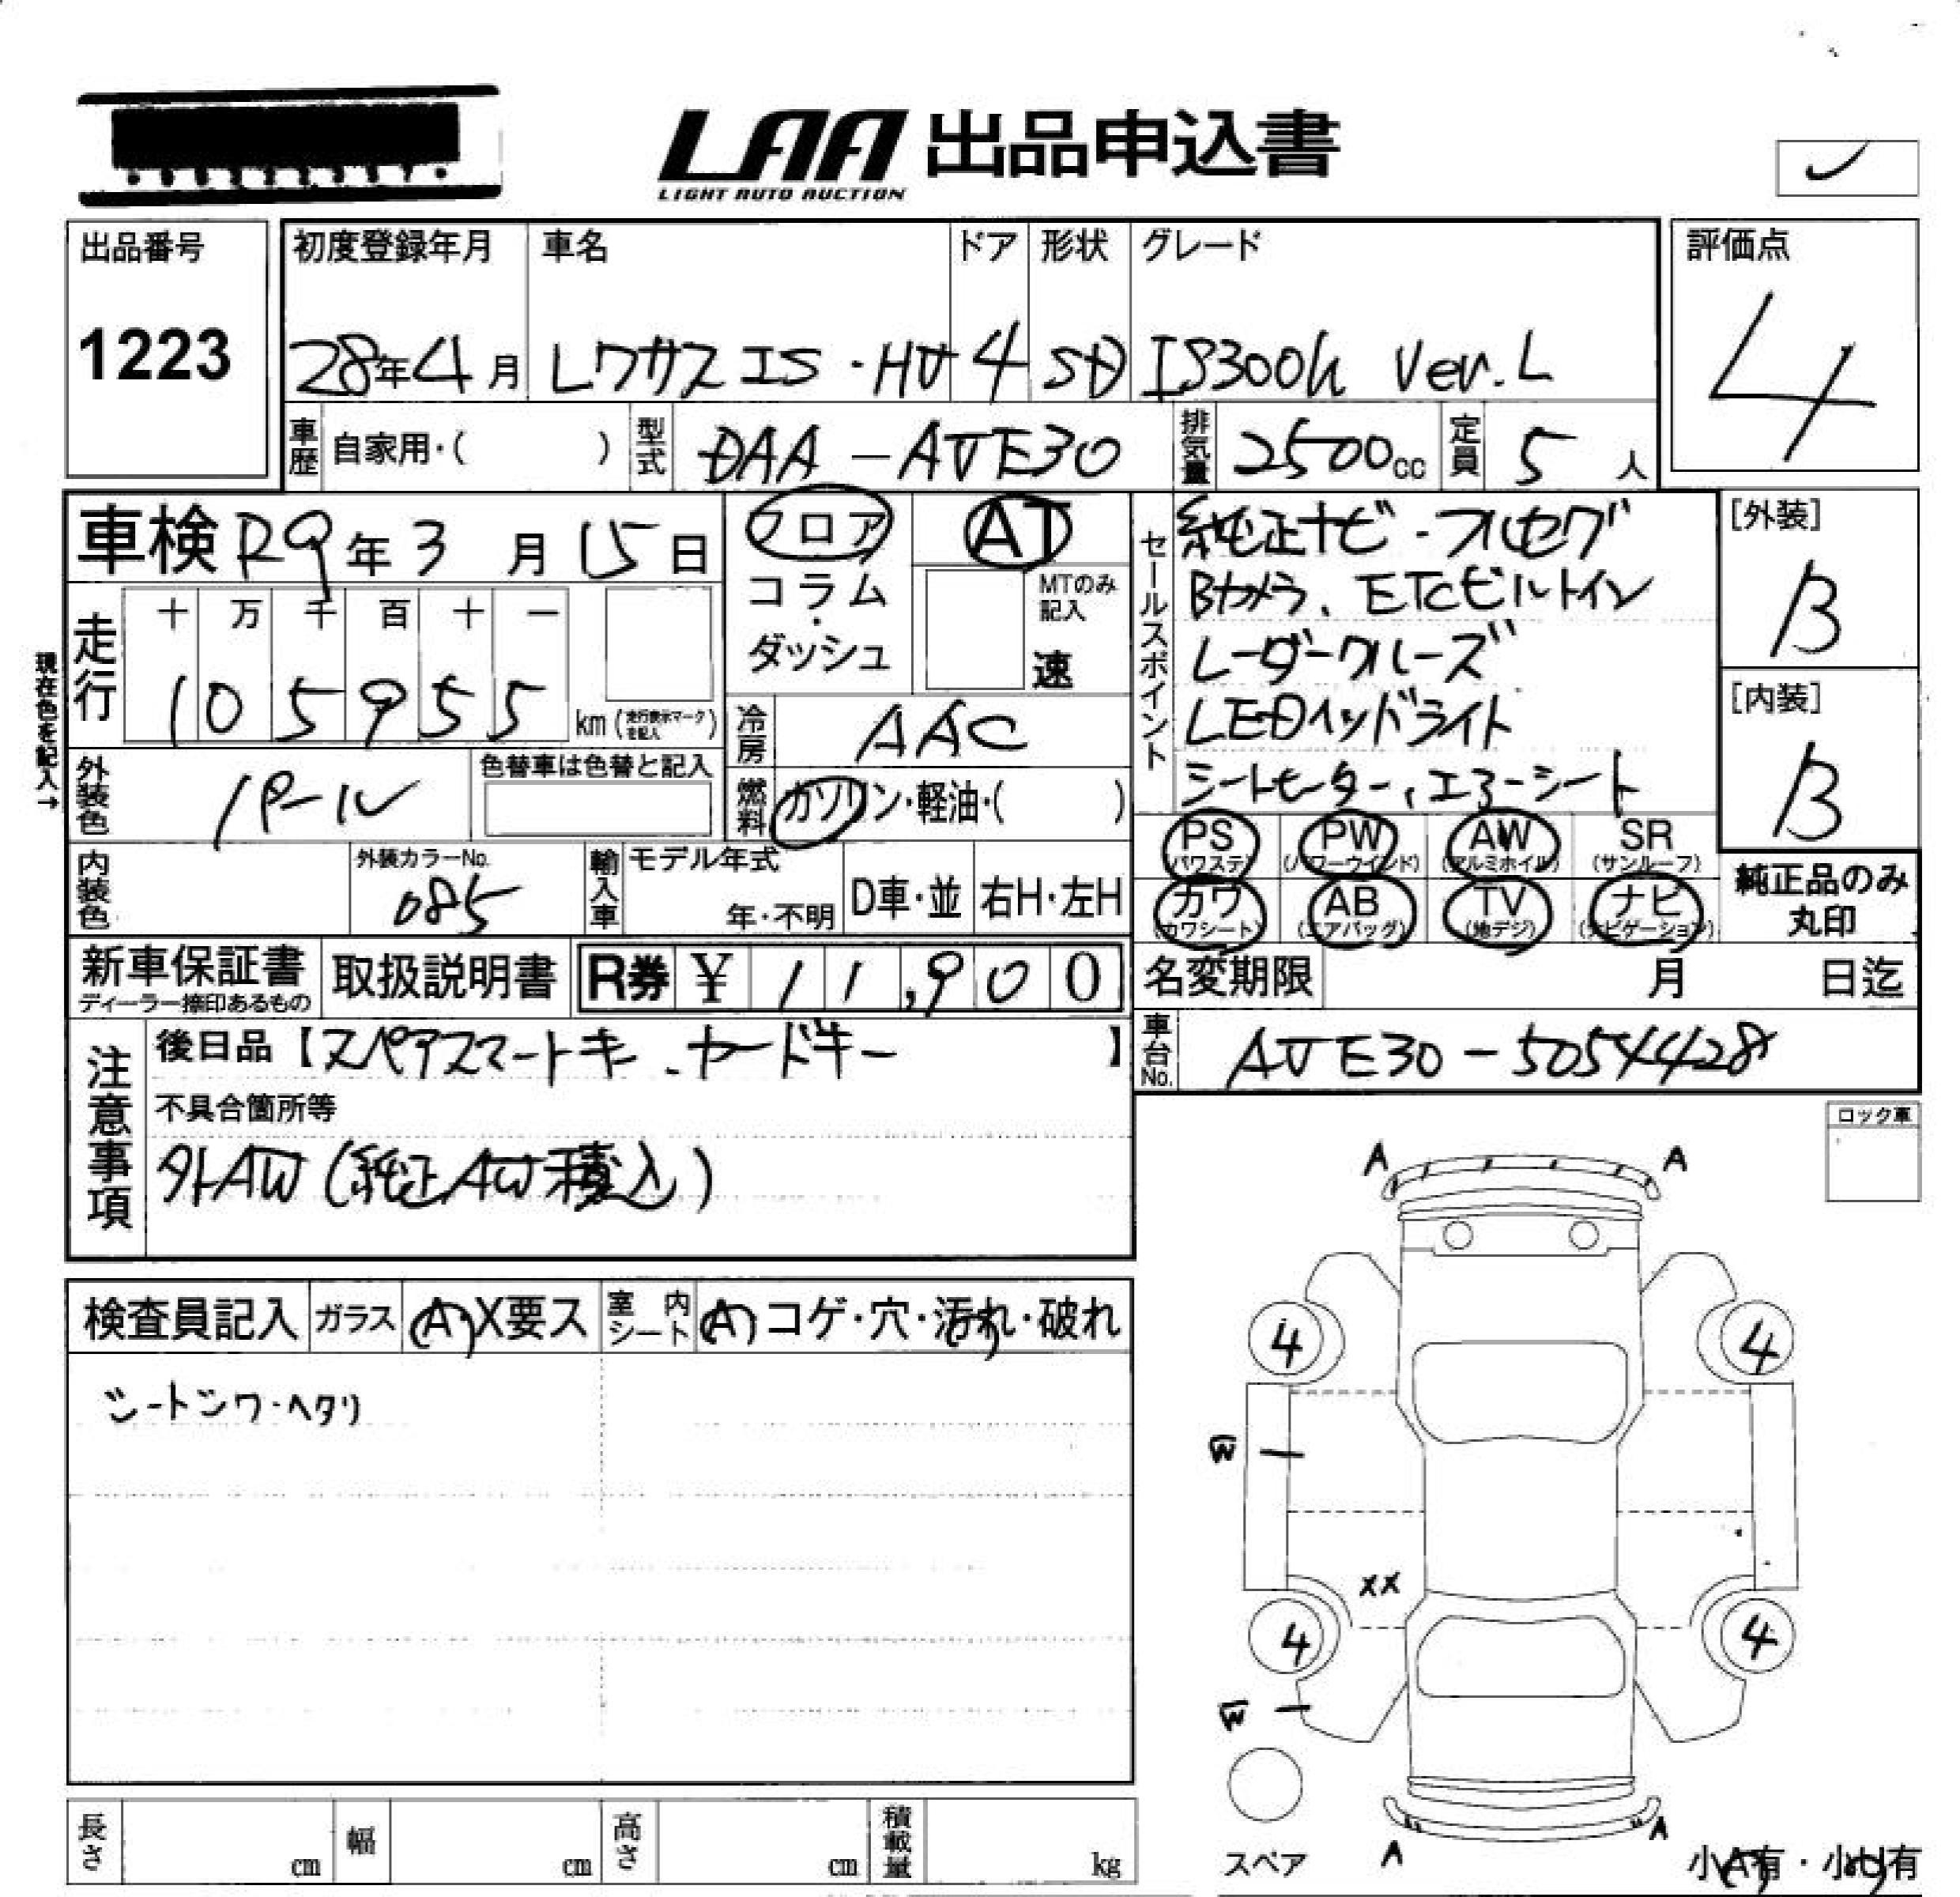 LAA 出品申込書
LIGHT AUTO AUCTION
出品番号
1223
初度登録年月 車名 ドア 形状 グレード
28年4月 レクサス IS・HV 4 SD IS300h Ver.L
評価点
4
車歴 自家用・( ) 型式 DAA-AVE30 排気量 2500cc 定員 5人
車検 R9年3月15日
フロア AT
コラム・ダッシュ
MTのみ記入
速
セールスポイント
純正ナビ・フルセグ
Bカメラ、ETCビルトイン
レーダークルーズ
LEDヘッドライト
シートヒーター、エアーシート
[外装]
B
[内装]
B
現在色を記入→
走行 十 万 千 百 十 一
105955 km (走行表示マークを記入)
冷房 AAC
外装色 パール 色替車は色替と記入
燃料 ガソリン・軽油・( )
内装色 外装カラーNo. 085
輸入車 モデル年式 年・不明 D車・並 右H・左H
PS (パワステ) PW (パワーウインド) AW (アルミホイル) SR (サンルーフ)
カワ (カワシート) AB (エアバッグ) TV (地デジ) ナビ (ナビゲーション)
純正品のみ丸印
新車保証書 ディーラー捺印あるもの 取扱説明書 R券 ¥ 11,900
名変期限 月 日迄
車台No. AVE30-5054428
注意事項
後日品【スペアスマートキー、カードキー】
不具合箇所等
外AW(純正AW積込)
ロック車
検査員記入 ガラス A・X要ス 室内シート A コゲ・穴・汚れ・破れ
シートシワ・ヘタリ
A A
4 4
W
XX
4 4
W
A A
スペア
小A有・小U有
長さ cm 幅 cm 高さ cm 積載量 kg